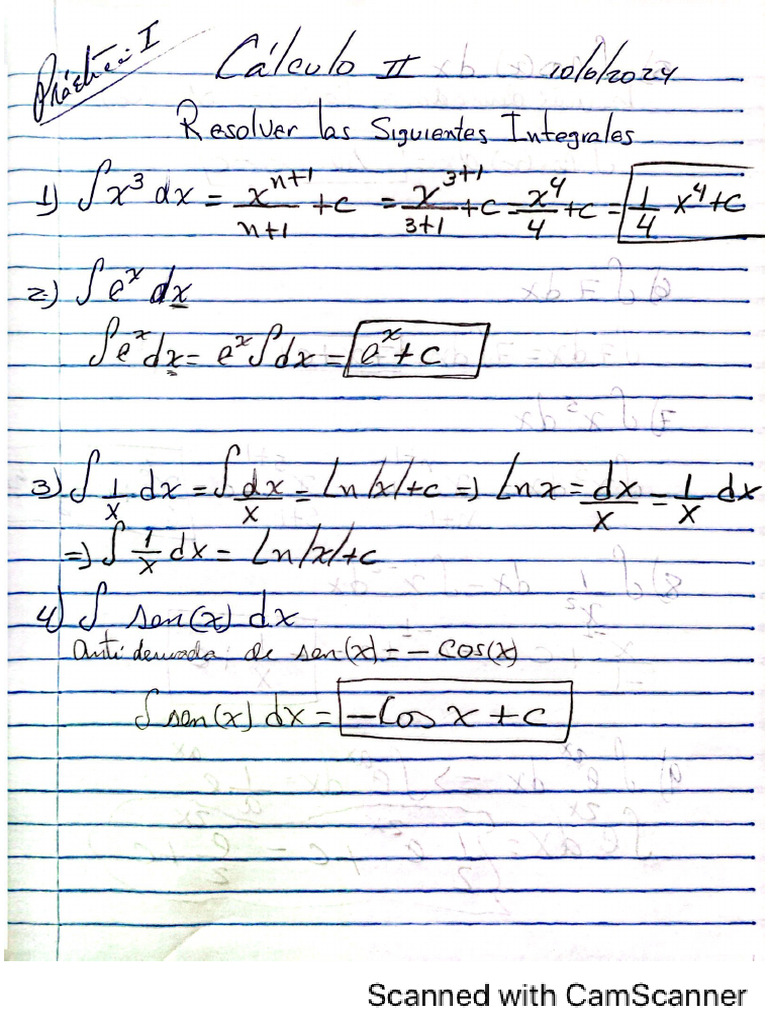 Práctica I
Cálculo II 10/6/2024
Resolver las Siguientes Integrales
1) ∫x³ dx = xⁿ⁺¹/n+1 + c = x³⁺¹/3+1 + c = x⁴/4 + c = 1/4 x⁴ + c
2) ∫eˣ dx
∫eˣ dx = eˣ ∫dx = eˣ + c
3) ∫ 1/x dx = ∫ dx/x = Ln|x| + c => Ln x = dx/x = 1/x dx
=> ∫ 1/x dx = Ln|x| + c
4) ∫ sen(x) dx
Antiderivada de sen(x) = - Cos(x)
∫ sen(x) dx = - Cos x + c
Scanned with CamScanner